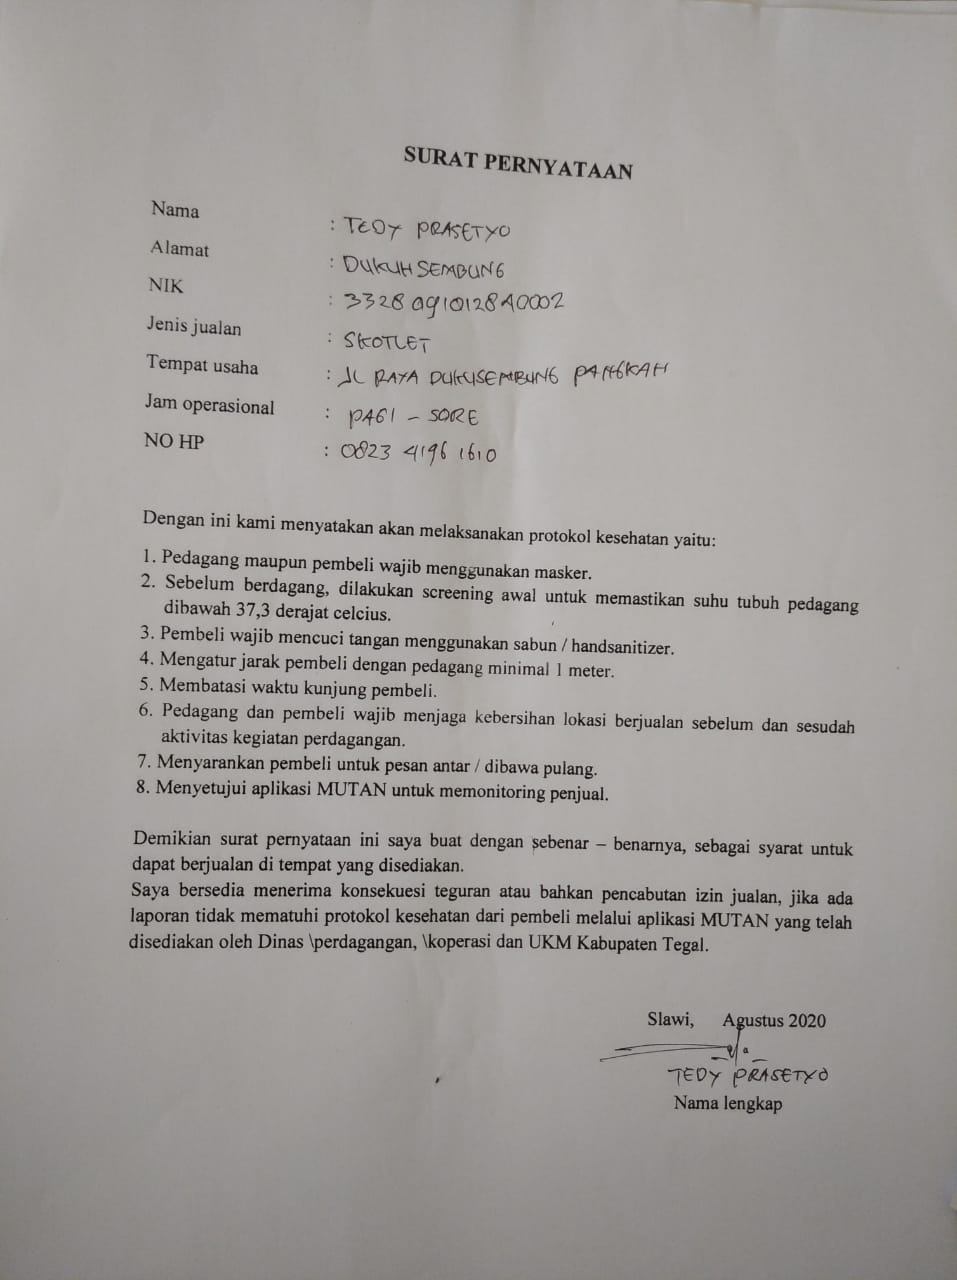 SURAT PERNYATAAN
Nama : TEDY PRASETYO
Alamat : DUKUH SEMBUNG
NIK : 3328091012840002
Jenis jualan : SKOTLET
Tempat usaha : JL RAYA DUKUSEMBUNG PANGKAH
Jam operasional : PAGI - SORE
NO HP : 0823 4196 1610
Dengan ini kami menyatakan akan melaksanakan protokol kesehatan yaitu:
1. Pedagang maupun pembeli wajib menggunakan masker.
2. Sebelum berdagang, dilakukan screening awal untuk memastikan suhu tubuh pedagang
dibawah 37,3 derajat celcius.
3. Pembeli wajib mencuci tangan menggunakan sabun / handsanitizer.
4. Mengatur jarak pembeli dengan pedagang minimal 1 meter.
5. Membatasi waktu kunjung pembeli.
6. Pedagang dan pembeli wajib menjaga kebersihan lokasi berjualan sebelum dan sesudah
aktivitas kegiatan perdagangan.
7. Menyarankan pembeli untuk pesan antar / dibawa pulang.
8. Menyetujui aplikasi MUTAN untuk memonitoring penjual.
Demikian surat pernyataan ini saya buat dengan sebenar – benarnya, sebagai syarat untuk
dapat berjualan di tempat yang disediakan.
Saya bersedia menerima konsekuesi teguran atau bahkan pencabutan izin jualan, jika ada
laporan tidak mematuhi protokol kesehatan dari pembeli melalui aplikasi MUTAN yang telah
disediakan oleh Dinas \perdagangan, \koperasi dan UKM Kabupaten Tegal.
Slawi, Agustus 2020
TEDY PRASETYO
Nama lengkap